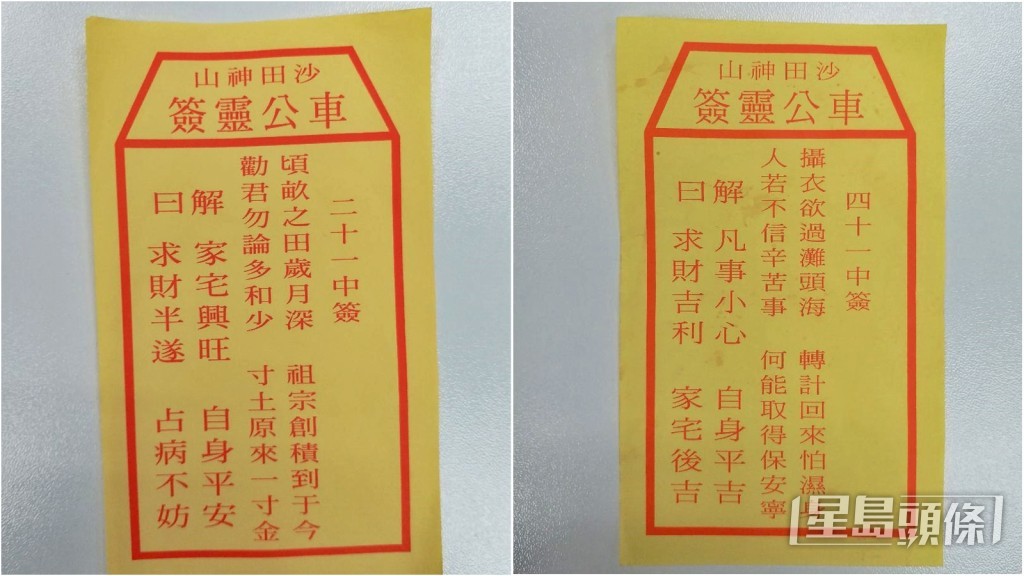 沙田神山
車公靈簽
二十一中簽
頃畝之田歲月深 祖宗創積到于今
勸君勿論多和少 寸土原來一寸金
解 家宅興旺 自身平安
曰 求財半遂 占病不妨
沙田神山
車公靈簽
四十一中簽
攝衣欲過灘頭海 轉計回來怕濕身
人若不信辛苦事 何能取得保安寧
解 凡事小心 自身平吉
曰 求財吉利 家宅後吉
星島頭條